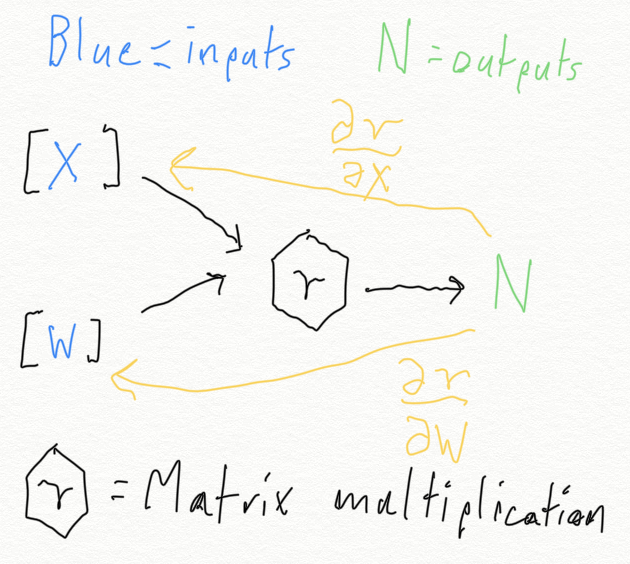 Blue = inputs
N = outputs
∂r
∂X
[X]
r
N
[W]
∂r
∂W
r = Matrix multiplication